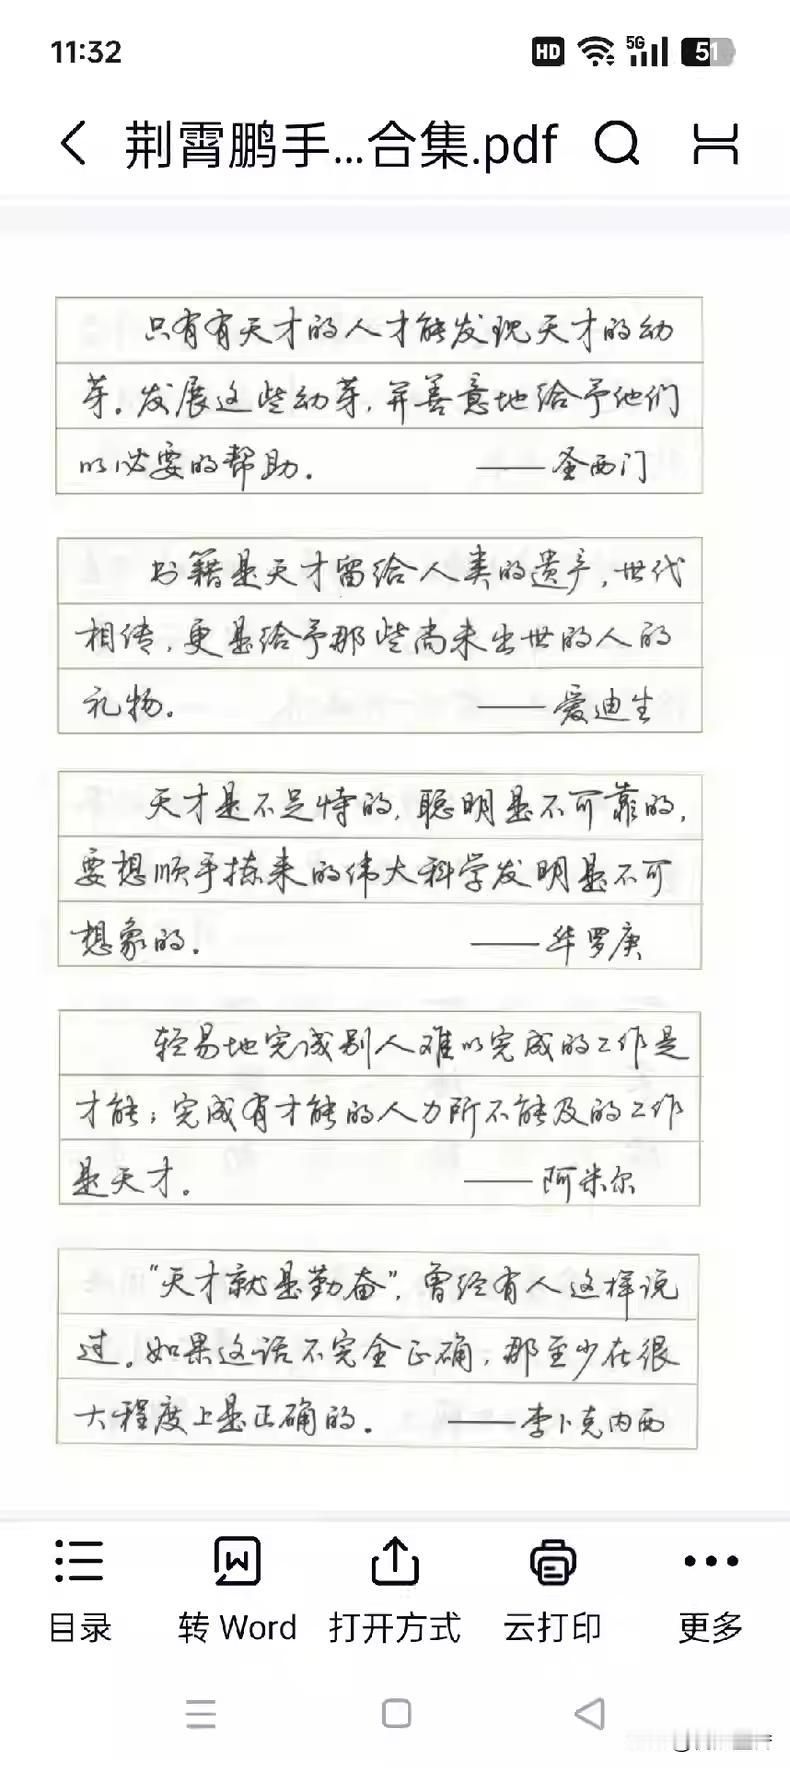 11:32
HD 5G 51
荆霄鹏手...合集.pdf
只有有天才的人才能发现天才的幼
芽。发展这些幼芽，并善意地给予他们
以必要的帮助。 ——圣西门
书籍是天才留给人类的遗产，世代
相传，更是给予那些尚未出世的人的
礼物。 ——爱迪生
天才是不足恃的，聪明是不可靠的，
要想顺手拣来的伟大科学发明是不可
想象的。 ——华罗庚
轻易地完成别人难以完成的工作是
才能；完成有才能的人力所不能及的工作
是天才。 ——阿米尔
“天才就是勤奋”，曾经有人这样说
过。如果这话不完全正确，那至少在很
大程度上是正确的。 ——李卜克内西
目录 转 Word 打开方式 云打印 更多